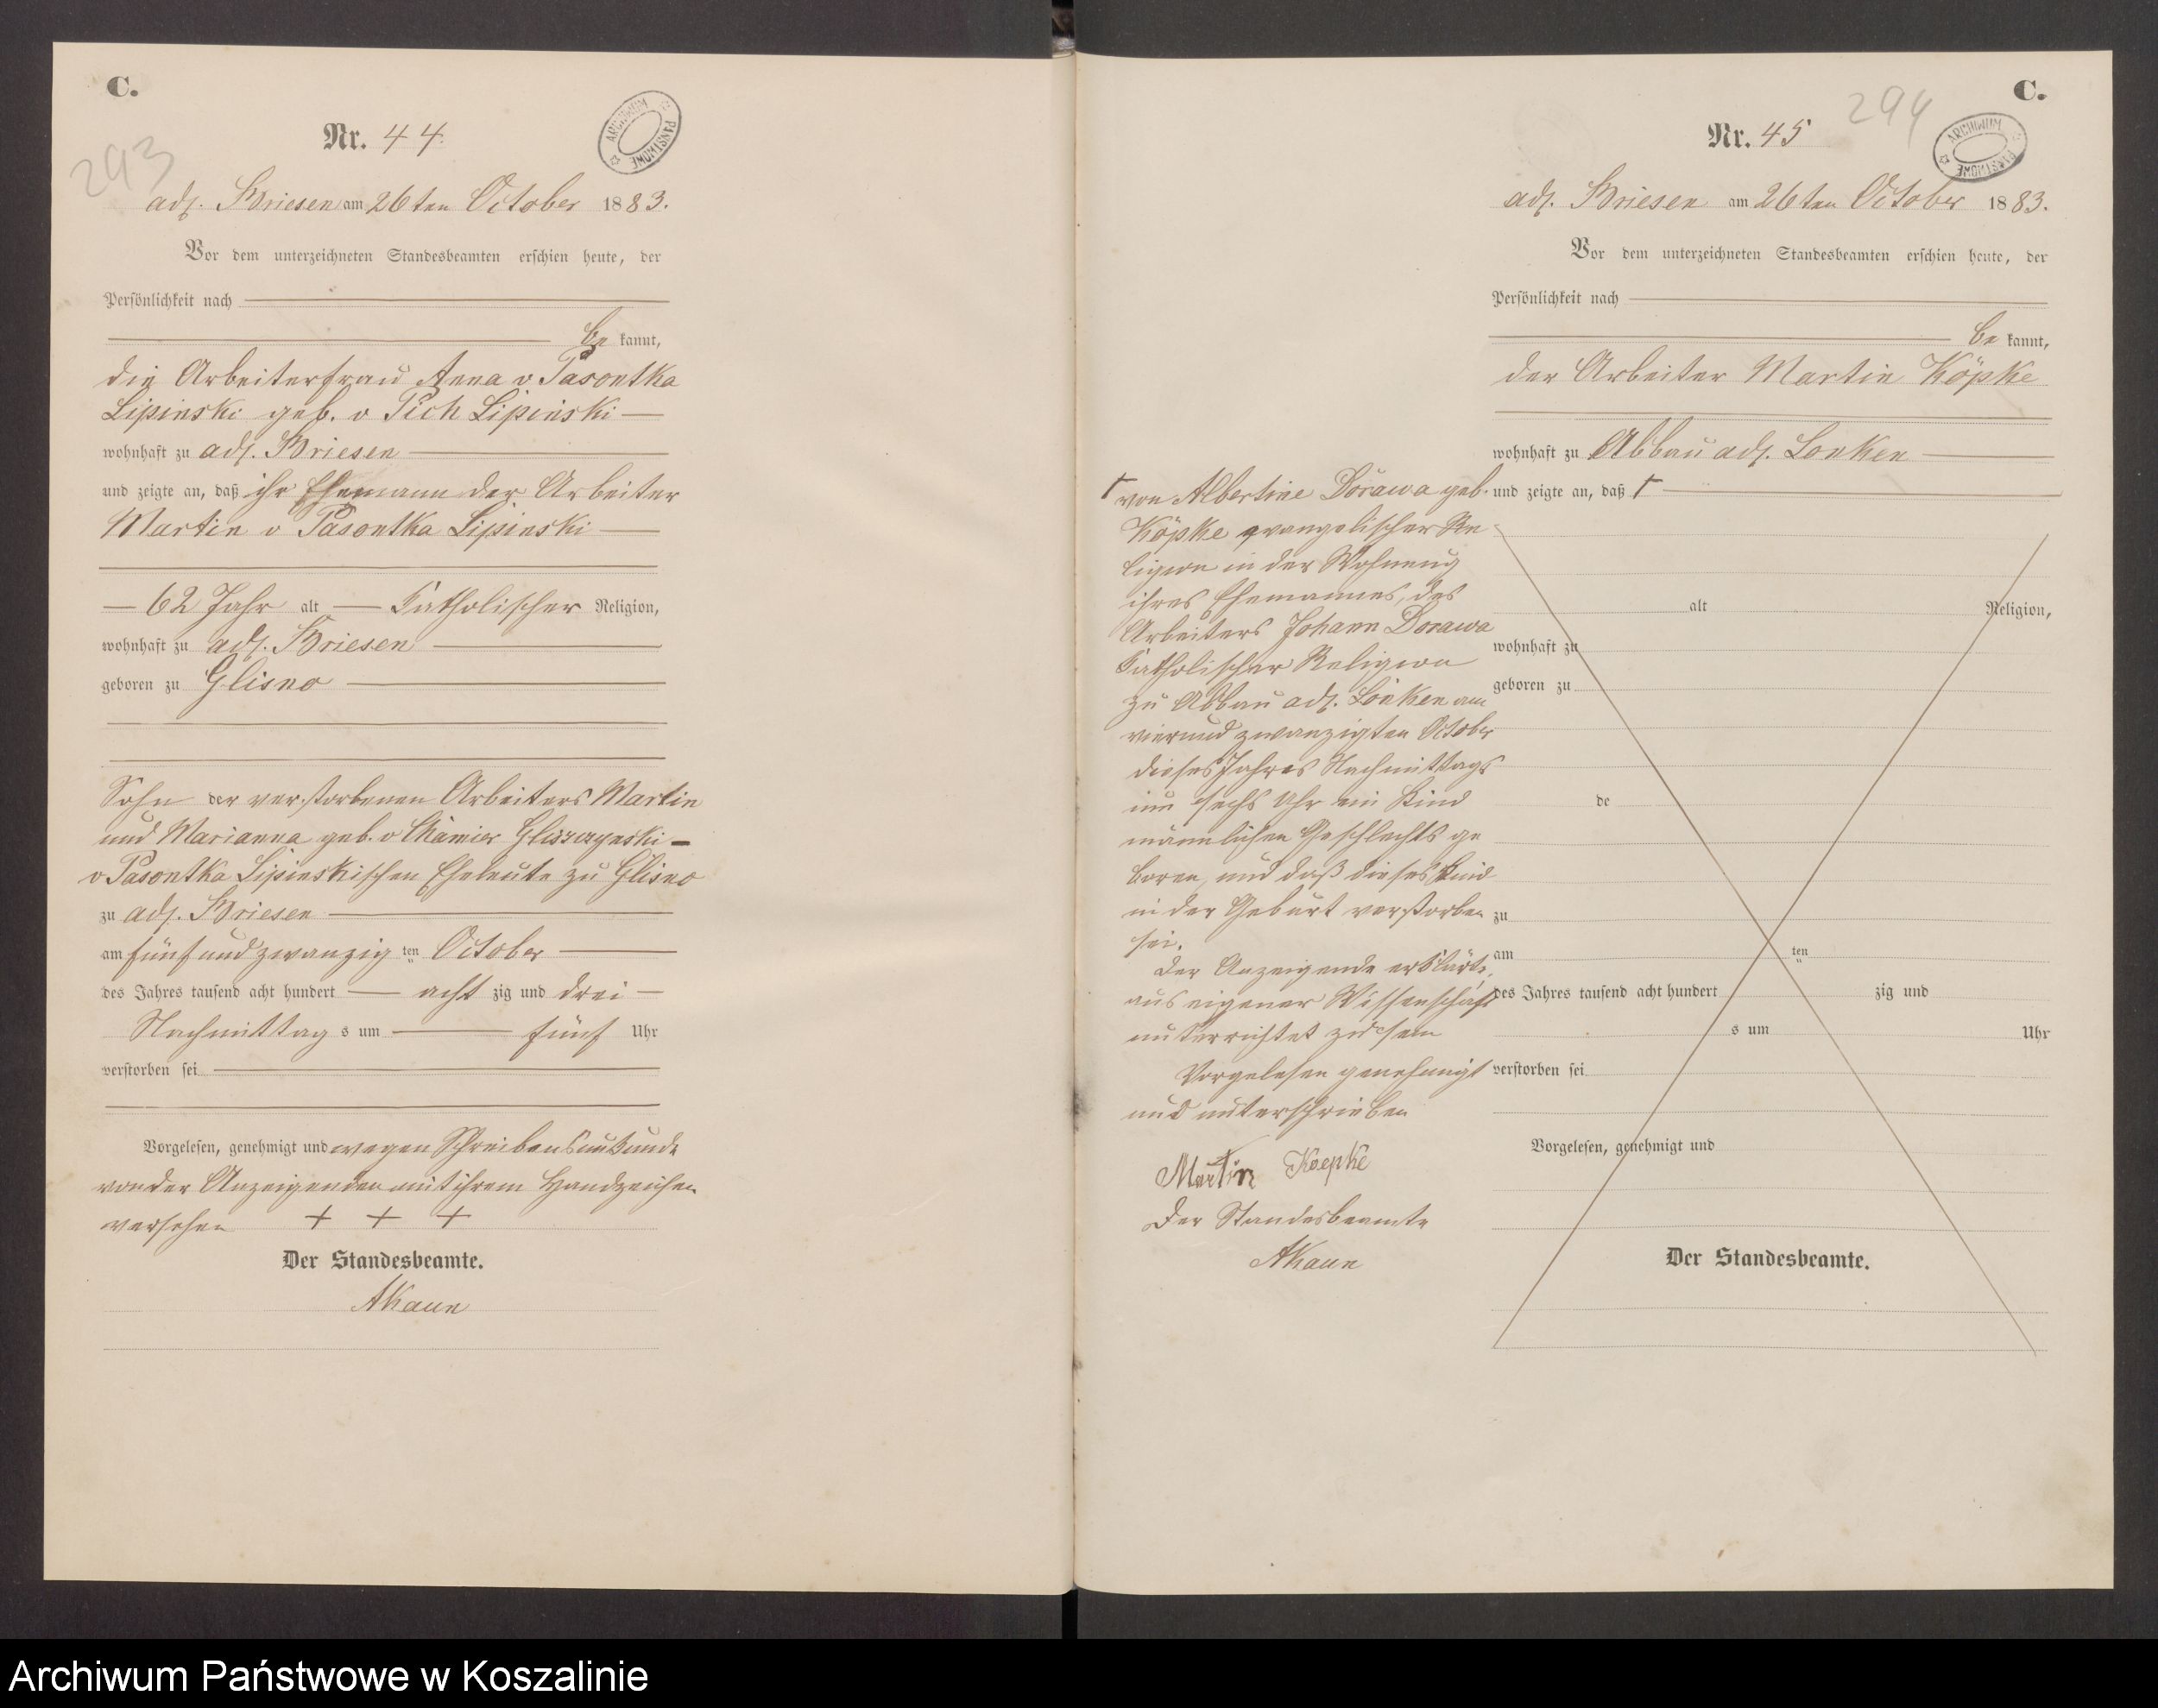 C.
293
Nr. 44.
ARCHIWUM PAŃSTWOWE
adl. Briesen am 26ten October 1883.
Vor dem unterzeichneten Standesbeamten erschien heute, der
Persönlichkeit nach
be kannt,
die Arbeiterfrau Anna v Pasontka
Lipinski geb. v Pich Lipinski
wohnhaft zu adl. Briesen
und zeigte an, daß ihr Ehemann der Arbeiter
Martin v Pasontka Lipinski
62 Jahr alt Katholischer Religion,
wohnhaft zu adl. Briesen
geboren zu Glisno
Sohn der verstorbenen Arbeiters Martin
und Marianna geb. v Chamier Gliszczynski
v Pasontka Lipinskischen Eheleute zu Glisno
zu adl. Briesen
am fünfundzwanzig ten October
des Jahres tausend acht hundert acht zig und drei
Nachmittag s um fünf Uhr
verstorben sei
Vorgelesen, genehmigt und wegen Schreibensunkunde
von der Anzeigenden mit ihrem Handzeichen
versehen + + +
Der Standesbeamte.
AKaun
C.
294
Nr. 45
ARCHIWUM PAŃSTWOWE
adl. Briesen am 26ten October 1883.
Vor dem unterzeichneten Standesbeamten erschien heute, der
Persönlichkeit nach
be kannt,
der Arbeiter Martin Köpke
wohnhaft zu Abbau adl. Lonken
und zeigte an, daß †
alt Religion,
wohnhaft zu
geboren zu
de
zu
am ten
des Jahres tausend acht hundert zig und
s um Uhr
verstorben sei
Vorgelesen, genehmigt und
Der Standesbeamte.
† von Albertine Dorawa geb.
Köpke evangelischer Re
ligion in der Wohnung
ihres Ehemannes, des
Arbeiters Johann Dorawa
Katholischer Religion
zu Abbau adl. Lonken am
vierundzwanzigten October
dieses Jahres Nachmittags
um sechs Uhr ein Kind
männlichen Geschlechts ge
boren, und daß dieses Kind
in der Geburt verstorben
sei.
Der Anzeigende erklärte,
aus eigener Wissenschaft
unterrichtet zu sein
Vorgelesen genehmigt
und unterschrieben
Martin Koepke
Der Standesbeamte
AKaun
Archiwum Państwowe w Koszalinie